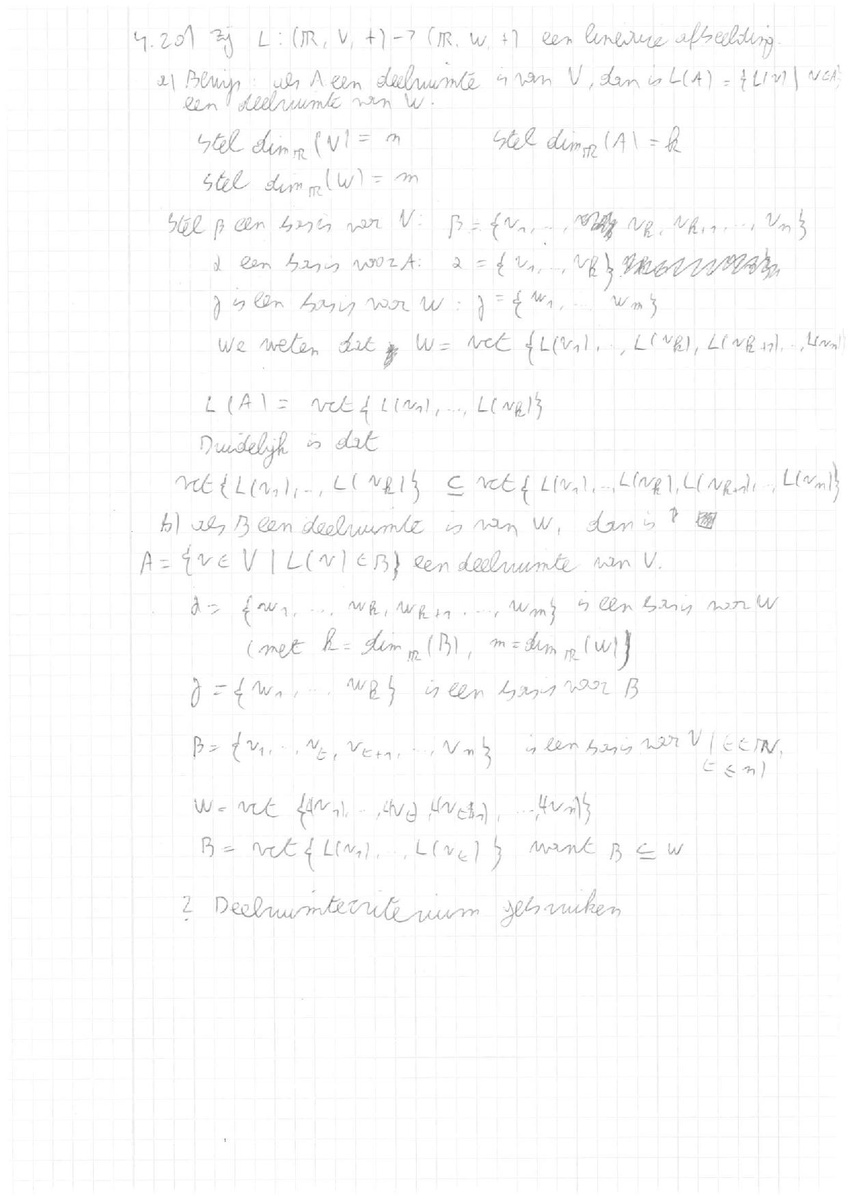 4.20) zij L : (ℝ, V, +) → (ℝ, W, +) een lineaire afbeelding.
a) Bewijs: als A een deelruimte is van V, dan is L(A) = {L(v) | v ∈ A}
een deelruimte van W.
Stel dim_ℝ(V) = n Stel dim_ℝ(A) = k
Stel dim_ℝ(W) = m
Stel β een basis voor V: β = {v₁, ..., v_k, v_k+1, ..., v_n}
α een basis voor A: α = {v₁, ..., v_k}
γ is een basis voor W: γ = {w₁, ... w_m}
We weten dat W = vct {L(v₁), ..., L(v_k), L(v_k+1), ..., L(v_n)}
L(A) = vct{L(v₁), ..., L(v_k)}
Duidelijk is dat
vct{L(v₁), ..., L(v_k)} ⊆ vct{L(v₁), ..., L(v_k), L(v_k+1), ..., L(v_n)}
b) als B een deelruimte is van W, dan is ?
A = {v ∈ V | L(v) ∈ B} een deelruimte van V.
α = {w₁, ... w_k, w_k+1 ..., w_m} is een basis voor W
(met k = dim_ℝ(B), m = dim_ℝ(W))
γ = {w₁, ... w_k} is een basis voor B
β = {v₁, ..., v_t, v_t+1, ..., v_n} is een basis voor V (t ∈ ℕ,
t ≤ n)
W = vct {L(v₁), ..., L(v_t), L(v_t+1), ..., L(v_n)}
B = vct{L(v₁), ..., L(v_t)} want B ⊆ W
? Deelruimtecriterium gebruiken